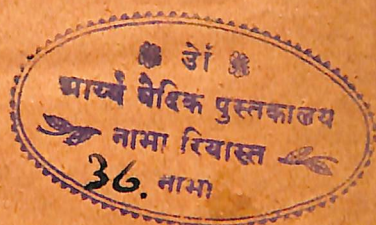 ओं
आर्य्य वैदिक पुस्तकालय
नाभा रियास्त
36. नाभा